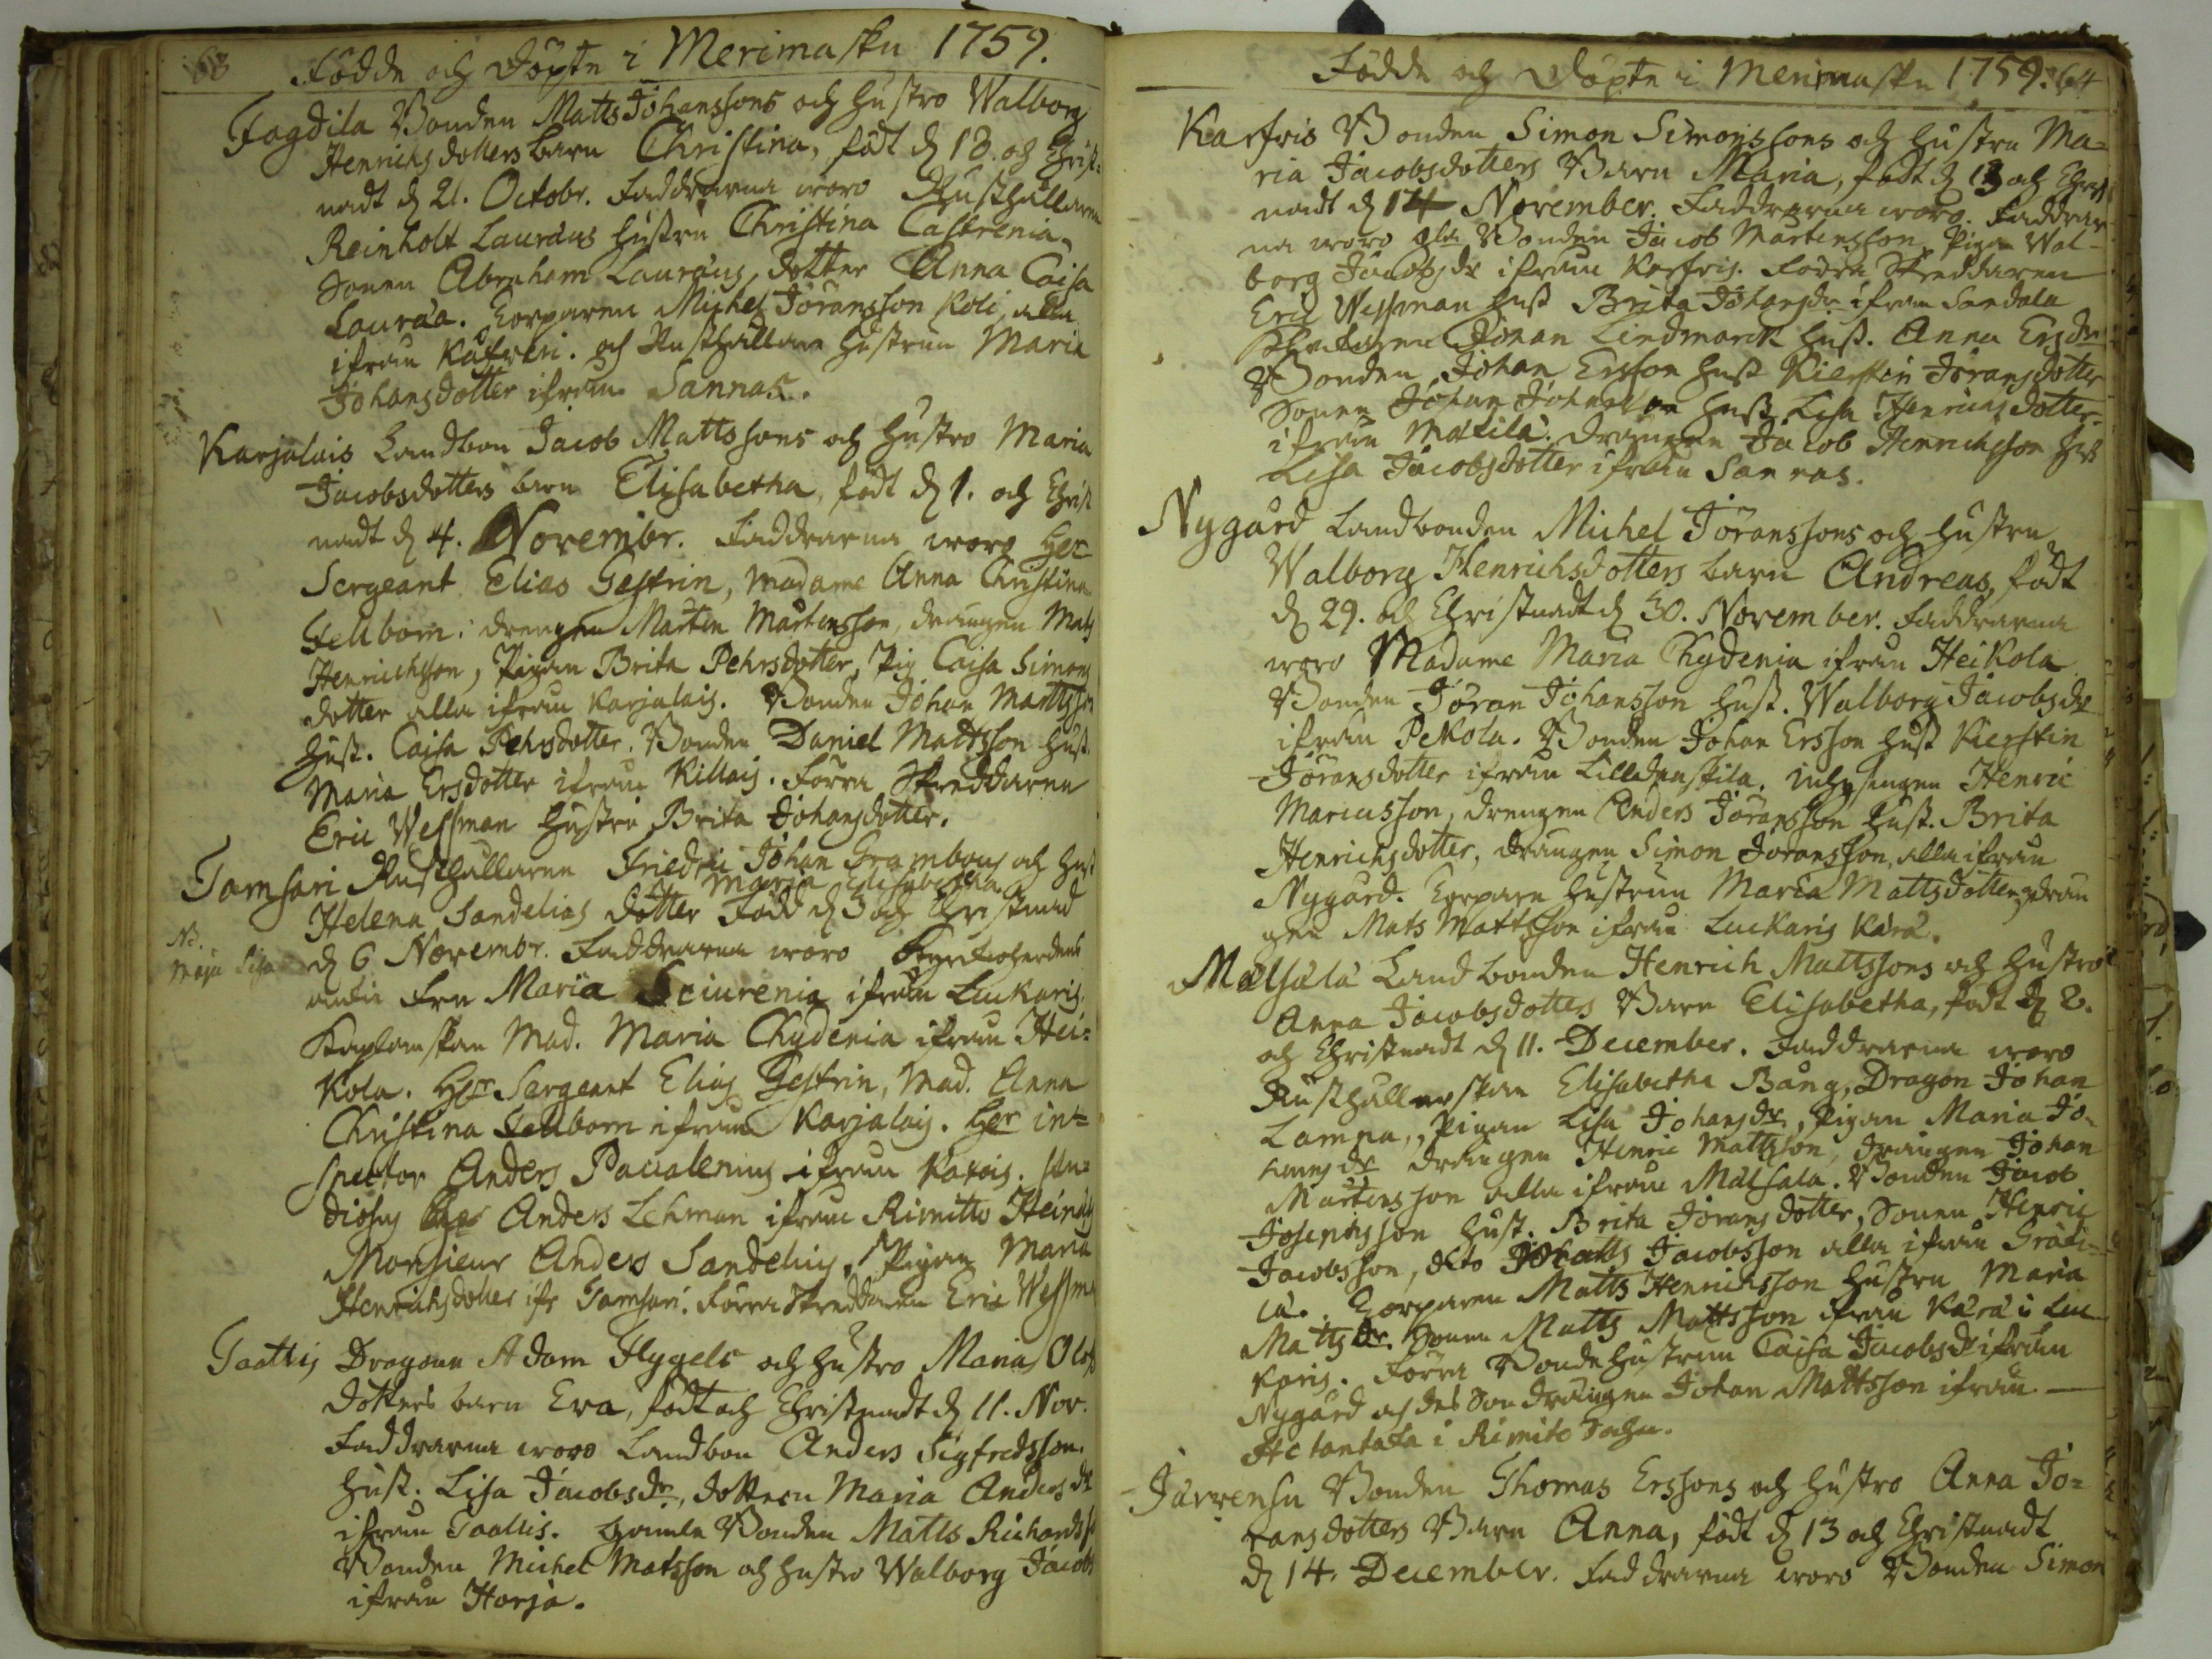 63 Födde och Döpte i Merimasku 1759.
Fagdila Bonden Matts Johanssons och hustro Walborg
Henrichsdotters barn Christina, födt d. 18. och Christ-
nadt d. 21. Octobr. Faddrarna woro Rusthållaren
Reinholt Lauræus hustru Christina Castrenia,
Sonen Abraham Lauræus, dotter Anna Caisa
Lauræa. Torparen Michel Jöransson Koli, alla
ifrån och Rusthållare hustrun Maria
Johansdotter ifrån Sannas.
Karjalais Landbon Jacob Mattssons och hustro Maria
Jacobsdotters barn Elisabetha, födt d. 1. och Christ
nadt d. 4. Novembr. Faddrarna woro Her
Sergeant Elias Gestrin, Madame Anna Christina
Fellbom: drengen Mårten Mårtensson, drängen Mats
Henrichsson, Pigan Brita Pehrsdotter, Pig Caisa Simons
dotter alla ifrån Karjalais. Bonden Johan Mattsson
Hust. Caisa Pehrsdotter. Bonden Daniel Mattsson Hust.
Maria Ersdotter ifrån Killais. Förra Skreddaren
Eric Wessman hustru Brita Johansdotter.
Tamsari Rusthållaren Friedric Johan Grambous och Hust
Maria Elisabetha
Helena Sandelias dotter född d. 5 och Christnad
Nb. Maja Lisa d. 6 Novembr. Faddrarna woro
Fru Maria Sciurenia ifrån Luckaris.
Kaplanskan Mad. Maria Chydenia ifrån Hei-
kola. Herr Sergeant Elias Gestrin, Mad. Anna
Christina Fellbom ifrån Karjalais. Her in-
spector Anders Pacalenius ifrån Katois. Stu-
diosus Her Anders Lehman ifrån Rimitto
Monsieur Anders Sandelius, Pigan Maria
Henrichsdotter ifr Tamsari. Förra Skreddaren Eric Wessman
Taattis Dragoun Adam Flygels och hustro Maria Olofs
dotters barn Eva, födt och Christnadt d. 11. Nov.
Faddrarna woro Landbon Anders Sigfredsson.
hust. Lisa Jacobsdr, dottren Maria Andersdr
ifrån Taattis. Gamle Bonden Matts Richardsso
Bonden Michel Matsson och hustro Walborg Jacobs
ifrån Horja.
Födde och Döpte i Merimasku 1759. 64
Karfris Bonden Simon Simonssons och hustru Ma-
ria Jacobsdotters Barn Maria, födt d. 13 och Christ
nadt d. 14 November. Faddrarna woro. Faddrar
na woro Bonden Jacob Mårtensson, Pigan Wal-
borg Jacobsdr ifrån Karfris. Förra Skreddaren
Eric Wessman hust Brita Johansdr ifrån Sandala
Johan Lindmarck hust. Anna Ersdr
Bonden Johan Ersson hust Kierstin Jöransdotter
Sonen Johan Johansson hust Lisa Henrichsdotter
ifrån Matila. Drängen Jacob Henrichsson hust
Lisa Jacobsdotter ifrån Sannas.
Nygård Landbonden Michel Jöranssons och hustru
Walborg Henrichsdotters barn Andreas, födt
d. 29. och Christnadt d. 30. November. Faddrarna
woro Madame Maria Chydenia ifrån Heikola
Bonden Jöran Johansson hust. Walborg Jacobsdr
ifrån Pekola. Bonden Johan Ersson hust Kierstin
Jöransdotter ifrån Inhysingen Henric
Marcusson, drengen Anders Jöransson hust. Brita
Henrichsdotter, drängen Simon Jöransson, alla ifrån
Nygård. Torpare hustrun Maria Mattsdotter, drän
gen Mats Mattsson ifrån Luckaris Kära.
Målsala Landbonden Henrich Mattssons och hustro
Anna Jacobsdotters Barn Elisabetha, födt d. 8.
och Christnadt d. 11. December. Faddrarna woro
Rusthållerskan Elisabetha Bång, Dragon Johan
Lampa, Pigan Lisa Johansdr, Pigan Maria Jo-
hansdr drängen Henric Mattsson, drängen Johan
Mårtensson alla ifrån Målsala. Bonden Jacob
Josephsson hust. Brita Jöransdotter, Sonen Henric
Jacobsson, dito Matts Jacobsson alla ifrån
Torparen Matts Henrichsson hustru Maria
Mattsdr. Sonen Matts Mattsson ifrån Kära i Luc
karis. Förra Bondehustrun Caisa Jacobsdr ifrån
Nygård och des Son drängen Johan Mattsson ifrån
i Rimito Sokn.
Järvensu Bonden Thomas Erssons och hustro Anna Jö-
ransdotters Barn Anna, födt d. 13 och Christnadt
d. 14. December. Faddrarna woro Bonden Simon